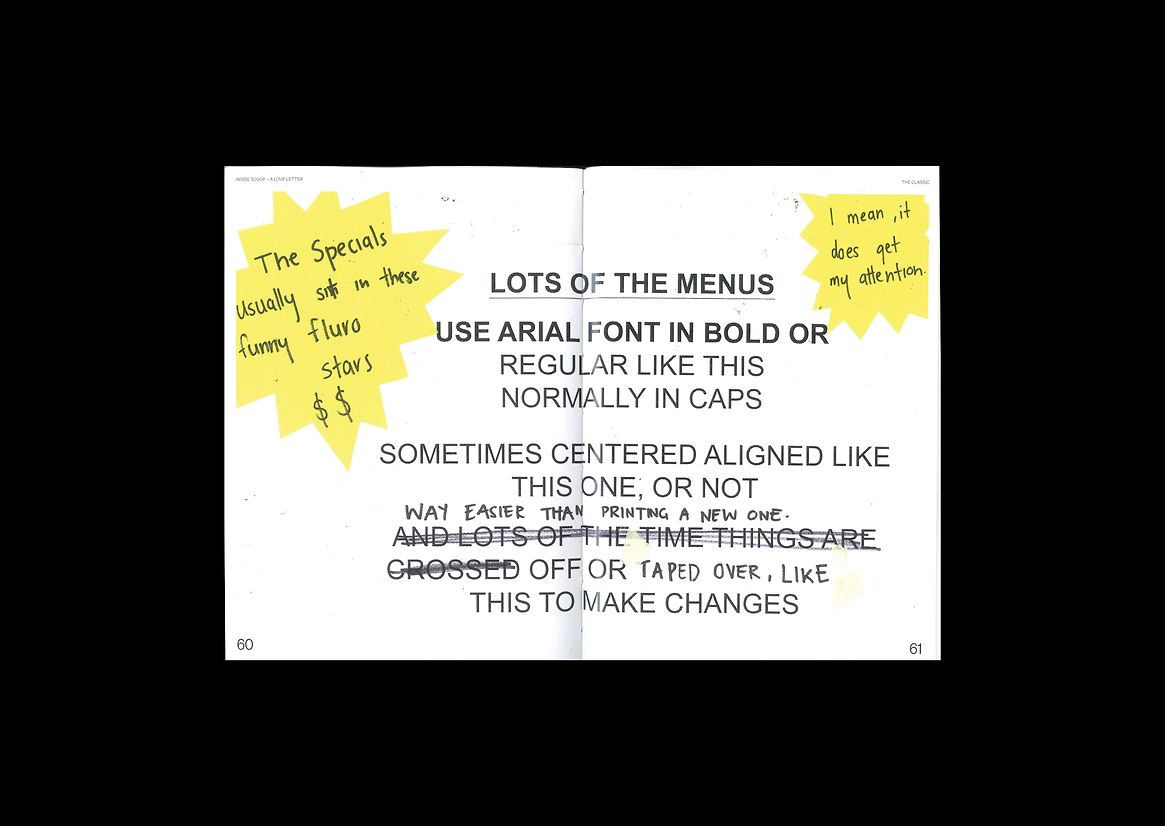 INSIDE SCOOP – A LOVE LETTER
THE CLASSIC
The Specials
usually sit in these
funny fluro
stars
$ $
I mean, it
does get
my attention.
LOTS OF THE MENUS
USE ARIAL FONT IN BOLD OR
REGULAR LIKE THIS
NORMALLY IN CAPS
SOMETIMES CENTERED ALIGNED LIKE
THIS ONE, OR NOT
WAY EASIER THAN PRINTING A NEW ONE.
AND LOTS OF THE TIME THINGS ARE
CROSSED OFF OR TAPED OVER, LIKE
THIS TO MAKE CHANGES
60
61